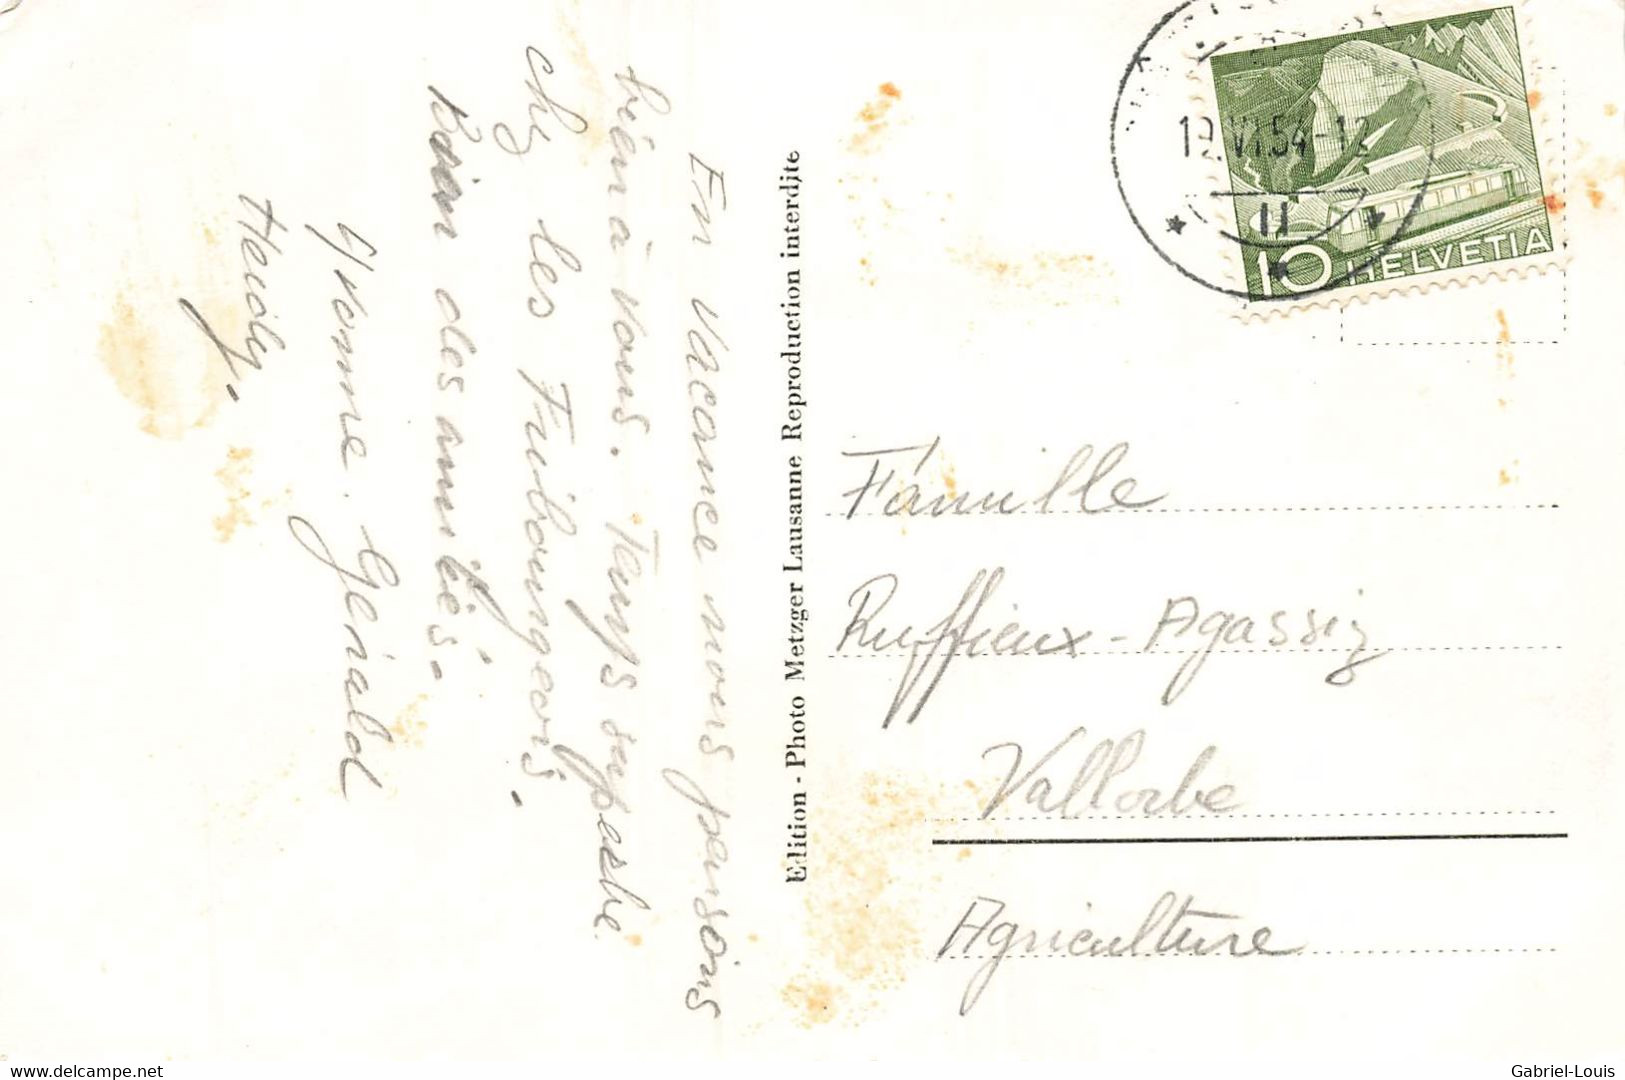 En Vacance nous pensons
bien à vous. Temps superbe
chz les Fribourgeois.
Bien des amitiés.
Yvonne. Gérald
Heidy.
Edition - Photo Metzger Lausanne Reproduction interdite
VI.54-12
II
10 HELVETIA
Famille
Ruffieux - Agassiz
Vallorbe
Agriculture
www.delcampe.net
Gabriel-Louis